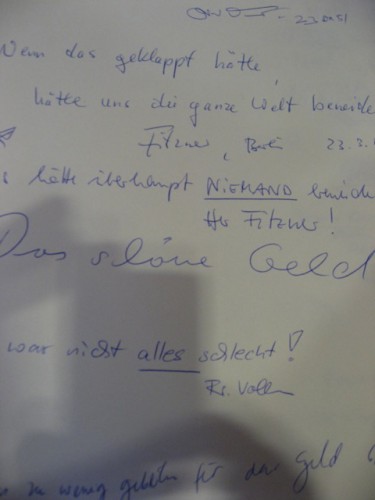 Wenn das geklappt hätte,
hätte uns die ganze Welt beneide
Fitzner, Berlin 23.3.
s hätte überhaupt NIEMAND beneide
Herr Fitzner!
Das schöne Geld
war nicht alles schlecht!
zu wenig für das Geld